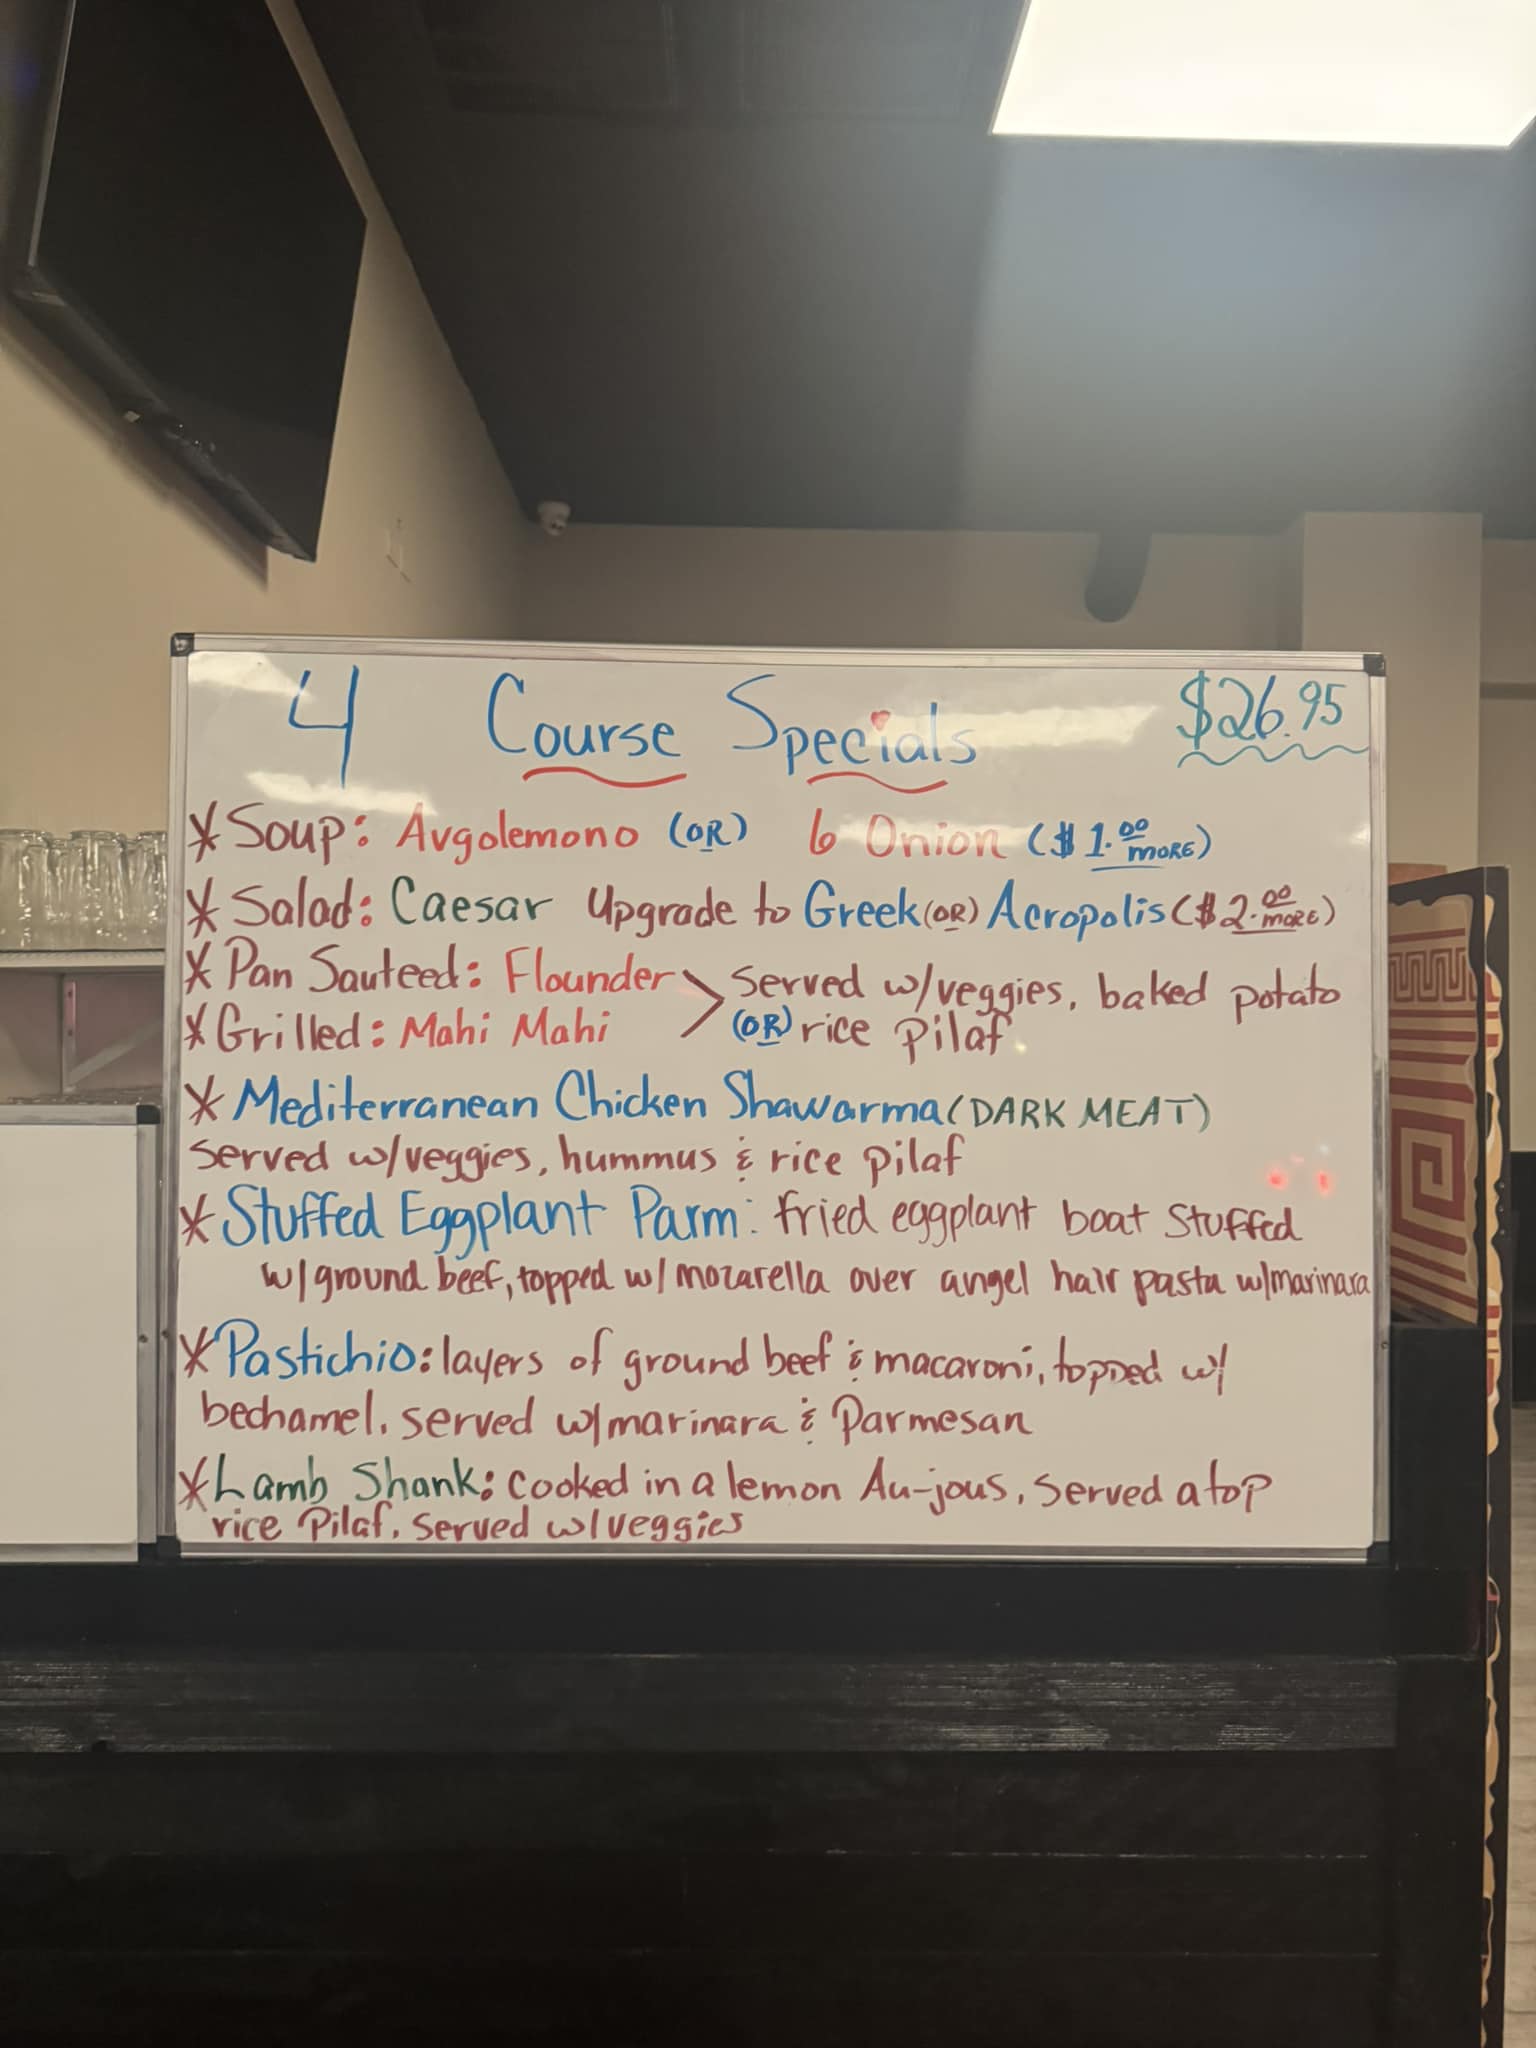 4 Course Specials $26.95
* Soup: Avgolemono (OR) 6 Onion ($1.00 MORE)
* Salad: Caesar Upgrade to Greek (OR) Acropolis ($2.00 more)
* Pan Sauteed: Flounder > Served w/veggies, baked potato
* Grilled: Mahi Mahi (OR) rice pilaf
* Mediterranean Chicken Shawarma (DARK MEAT)
Served w/veggies, hummus & rice pilaf
* Stuffed Eggplant Parm: fried eggplant boat Stuffed
w/ground beef, topped w/ mozarella over angel hair pasta w/marinara
* Pastichio: layers of ground beef & macaroni, topped w/
bechamel. served w/marinara & Parmesan
* Lamb Shank: Cooked in a lemon Au-jous, served atop
rice Pilaf. served w/veggies